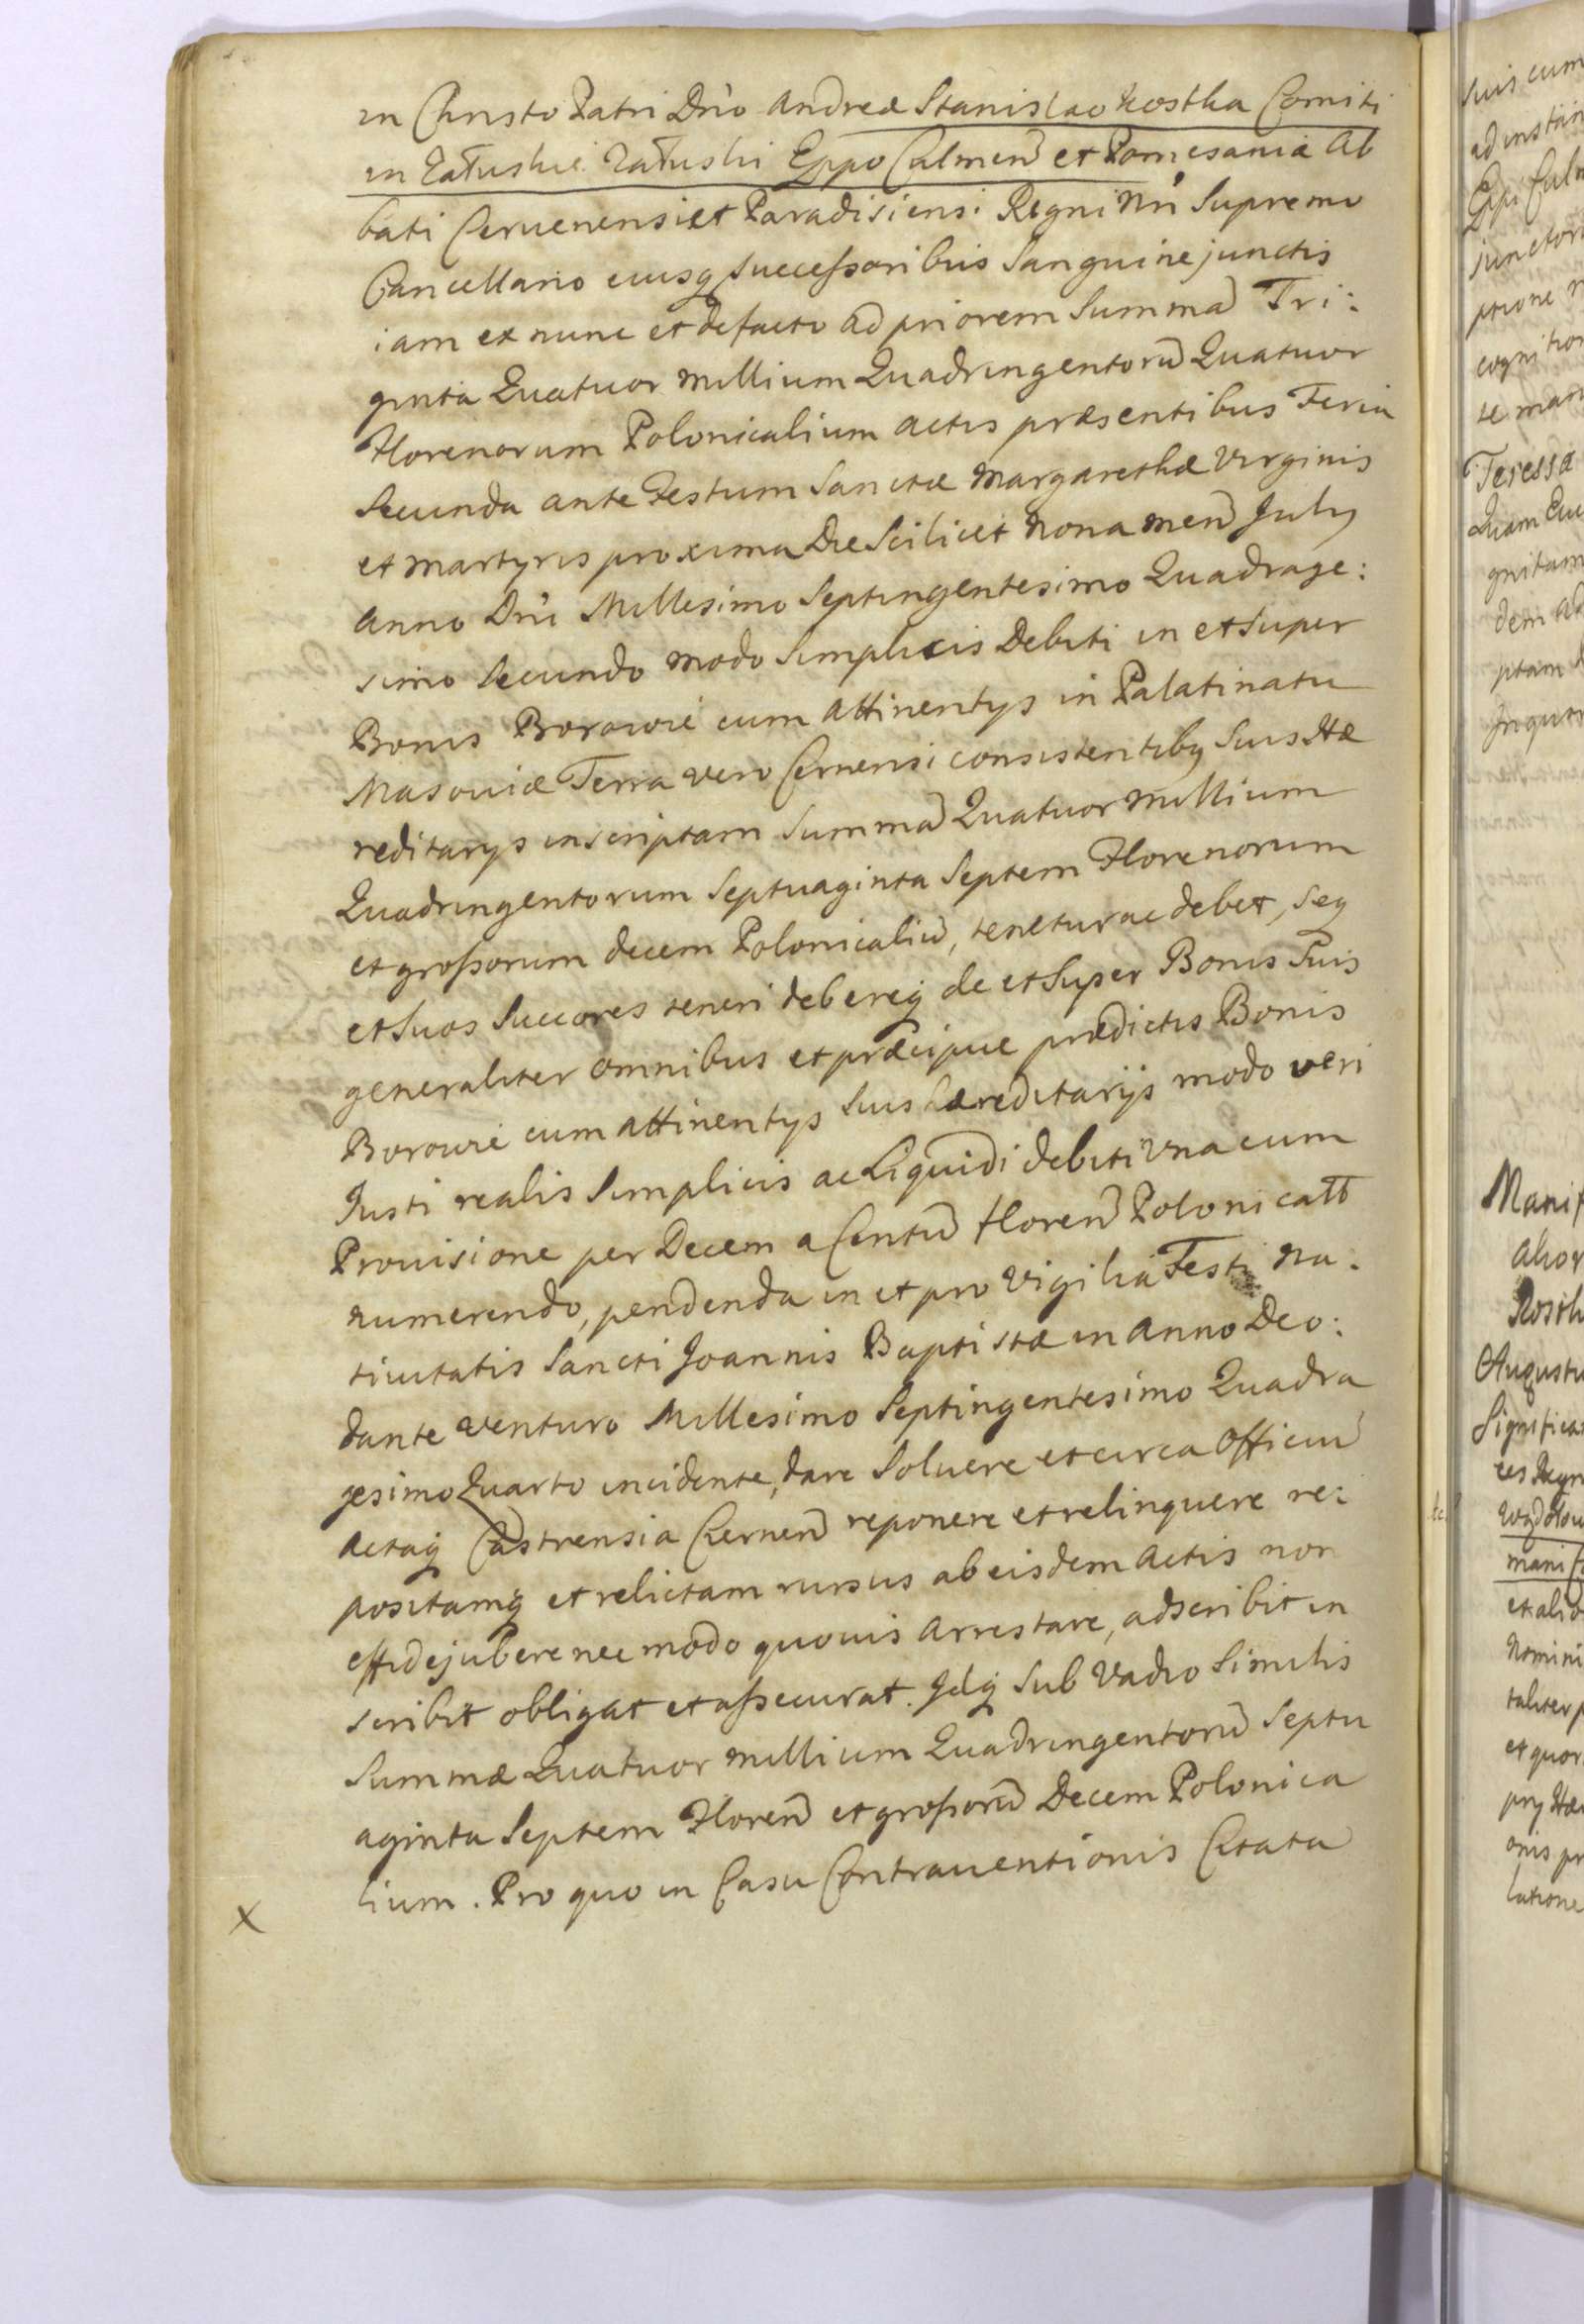 in Christo Patri Dño Andreæ Stanislao Kostka Comiti
in Załuskie Załuski Eppo Culmeñ et Pomesaniæ Ab
bati Cervenensi et Paradisiensi Regni Nri Supremo
Cancellario eiusq Successoribus Sanguine junctis
iam ex nunc et defacto ad priorem Summã Tri:
ginta Quatuor Millium Quadringentorũ Quatuor
Florenorum Polonicalium actis præsentibus Feria
Secunda ante Festum Sanctæ Margarethæ Virginis
et Martyris proxima Die Scilicet Nona Meñ July
Anno Dñi Millesimo Septingentesimo Quadrage:
simo Secundo modo Simplicis Debiti in et Super
Bonis Borowie cum Attinentys in Palatinatu
Masoviæ Terra vero Cernensi consistentibq Suis Hæ
reditarys inscriptam Summã Quatuor Millium
Quadringentorum Septuaginta Septem Florenorum
et grossorum decem Polonicaliũ, tenetur ac debet, seq
et Suos Succores teneri debereq de et Super Bonis Suis
generaliter omnibus et præcipue prædictis Bonis
Borowie cum attinentys Suis hæreditarijs modo veri
Justi realis Simplicis ac Liquidi debiti Vna cum
Provisione per Decem a Centũ Floreñ Polonicall
numerendo, pendenda in et pro Vigilia Festi Na:
tivitatis Sancti Joannis Baptistæ in Anno Deo:
dante venturo Millesimo Septingentesimo Quadra
gesimo Quarto incidente, dare Solvere et circa Officiũ
Actaq Castrensia Cerneñ reponere et relinquere re:
positamq et relictam rursus ab eisdem Actis non
effidejubere nec modo quovis Arrestare, adscribit in
scribit obligat et assecurat. Idq Sub Vadio Similis
Summæ Quatuor Millium Quadringentorũ Septu
aginta Septem Floreñ et grossorũ Decem Polonica
lium. Pro quo in Casu Contraventionis Citata
X